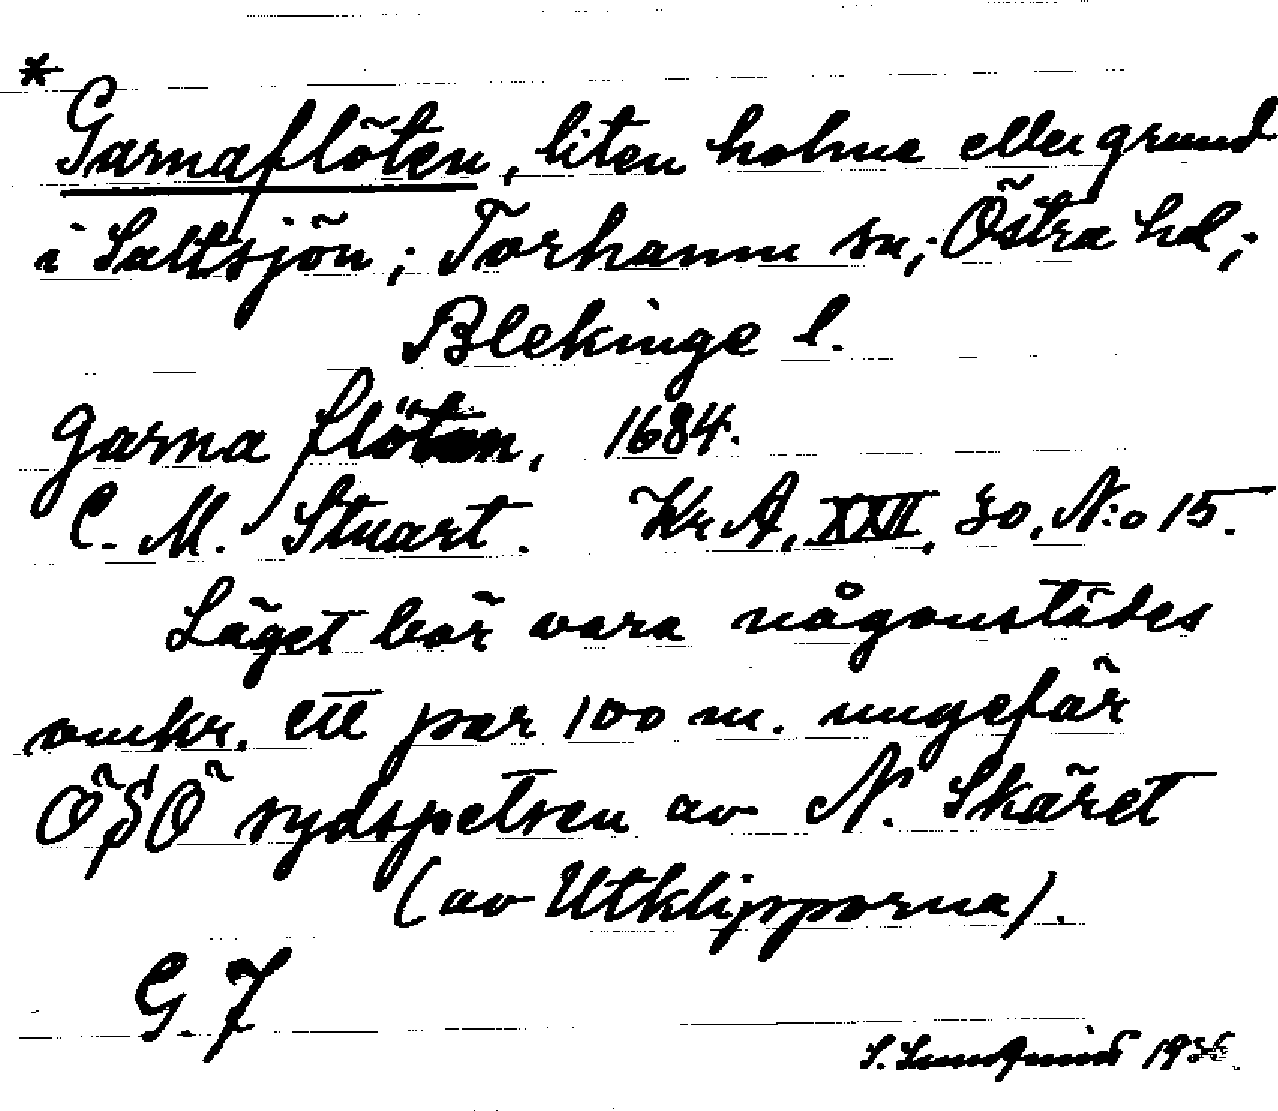 * Garnaflöten, liten holme eller grund
i Saltsjön; Torhamn sn; Östra hd;
Blekinge l.
garna flöten, 1684.
C. M. Stuart. Kr. A, XXII, 30, N:o 15.
Läget bör vara någonstädes
omkr. ett par 100 m. ungefär
ÖSÖ sydspetsen av N. Skäret
(av Utklipporna).
G. J
S. Lundqvist